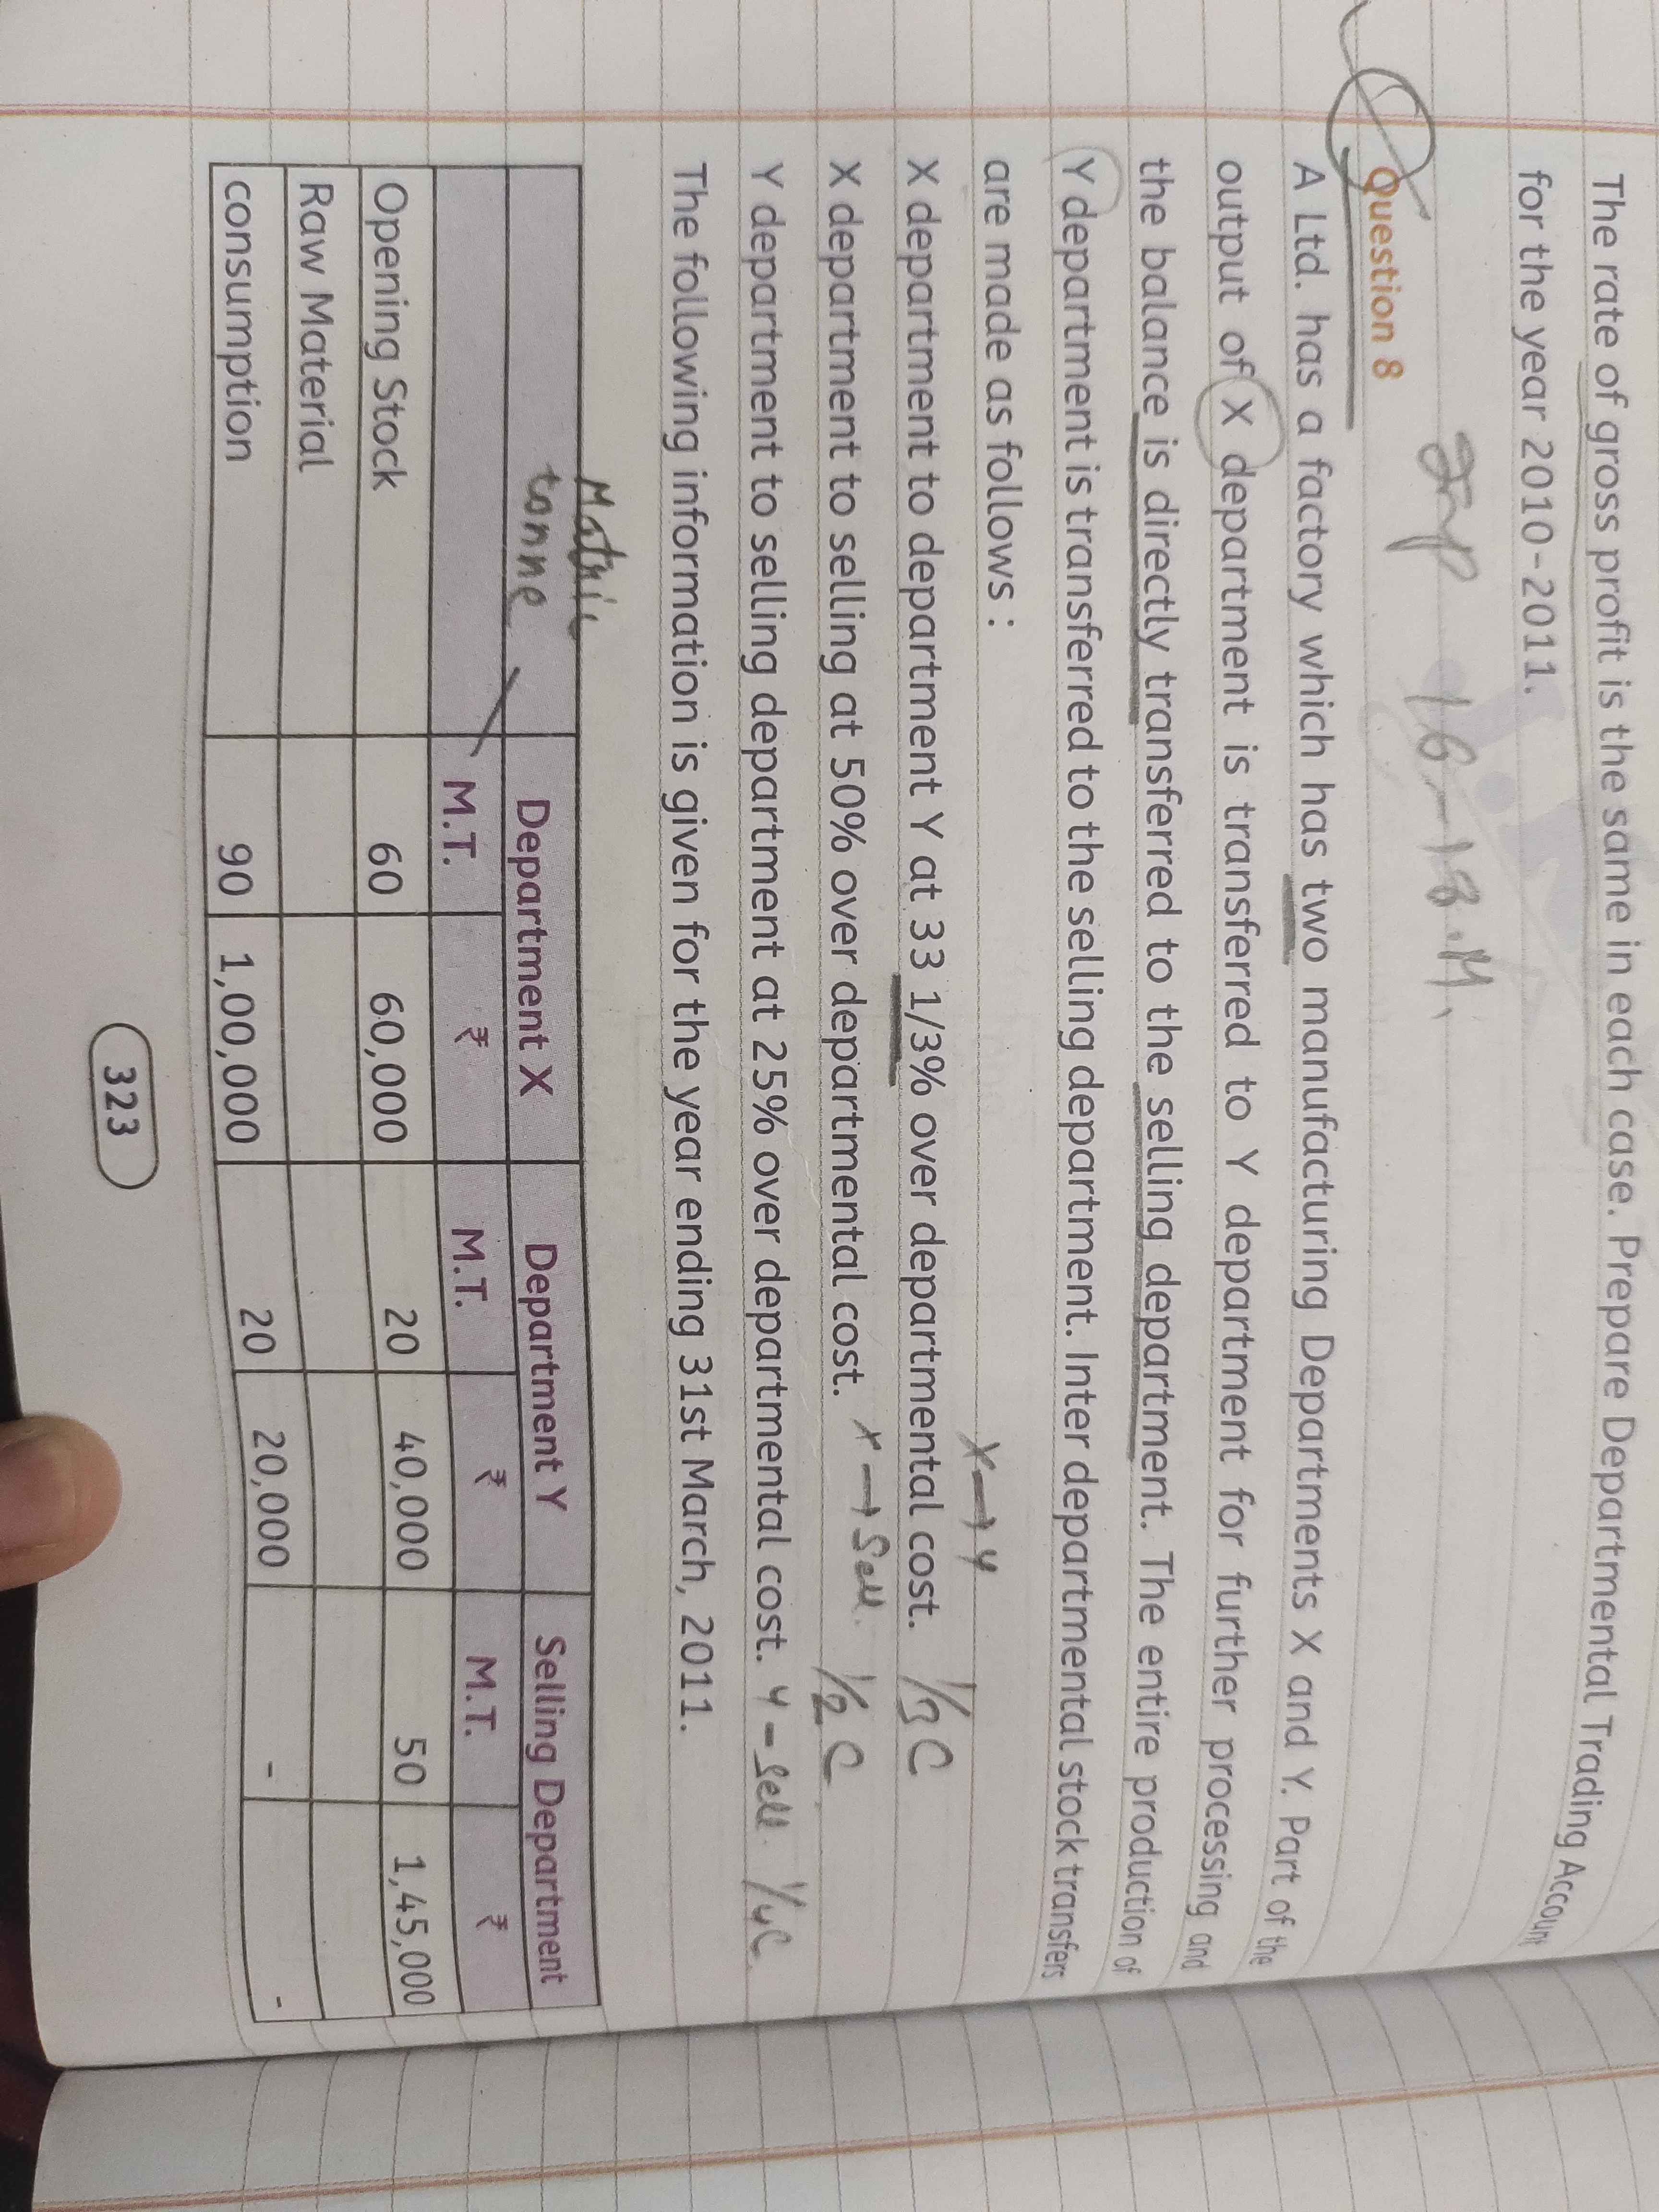 The rate of gross profit is the same in each case. Prepare Departmental Trading Account
for the year 2010-2011.
Imp 16-18.M.
Question 8
A Ltd. has a factory which has two manufacturing Departments X and Y. Part of the
output of X department is transferred to Y department for further processing and
the balance is directly transferred to the selling department. The entire production of
Y department is transferred to the selling department. Inter departmental stock transfers
are made as follows :
X → Y
X department to department Y at 33 1/3% over departmental cost. 1/3 C
X department to selling at 50% over departmental cost. X → Sell. 1/2 C
Y department to selling department at 25% over departmental cost. Y - Sell. 1/4 C.
The following information is given for the year ending 31st March, 2011.
Matric
tonne
Department X Department Y Selling Department
M.T. ₹ M.T. ₹ M.T. ₹
Opening Stock 60 60,000 20 40,000 50 1,45,000
Raw Material
consumption 90 1,00,000 20 20,000 - -
323